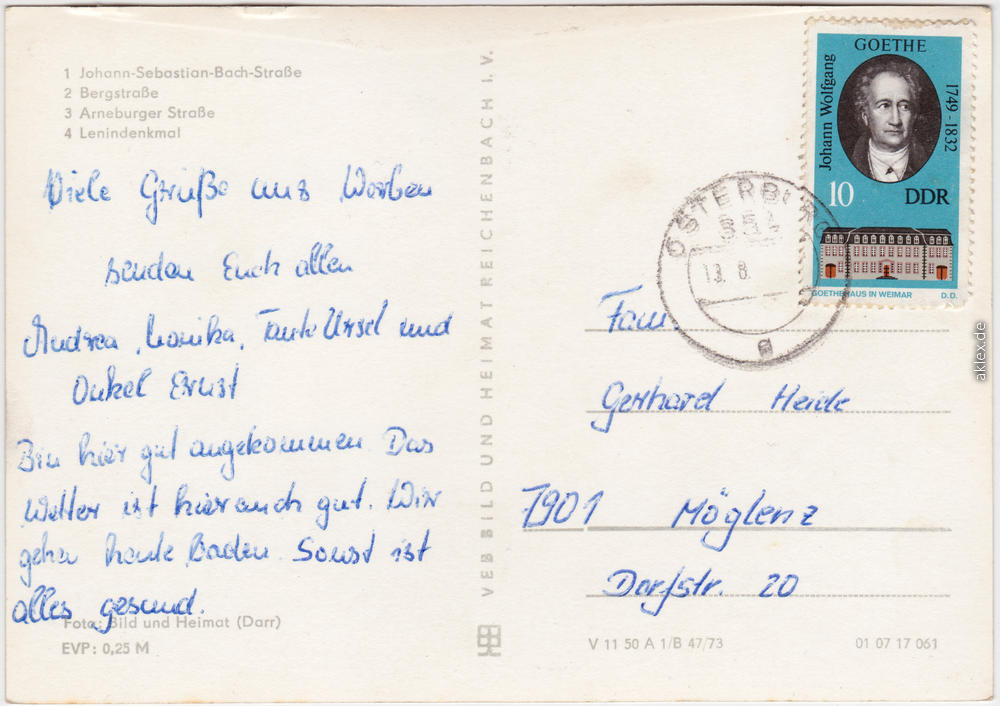 1 Johann-Sebastian-Bach-Straße
2 Bergstraße
3 Arneburger Straße
4 Lenindenkmal
Viele Grüße aus Werben
senden Euch allen
Andrea, Monika, Tante Ursel und
Onkel Ernst
Bin hier gut angekommen. Das
Wetter ist hier auch gut. Wir
gehen heute Baden. Sonst ist
alles gesund.
Foto: Bild und Heimat (Darr)
EVP: 0,25 M
VEB BILD UND HEIMAT REICHENBACH I. V.
GOETHE
Johann Wolfgang
1749-1832
10 DDR
GOETHEHAUS IN WEIMAR D.D.
OSTERBURG
354
13. 8.
a
Fam.
Gerhard Heide
7901 Möglenz
Dorfstr. 20
V 11 50 A 1/B 47/73 01 07 17 061
aklex.de